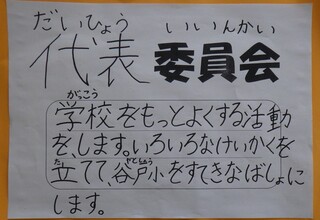 だいひょう いいんかい
代表 委員会
がっこう
学校をもっとよくする活動
を、します。いろいろなけいかくを
た やとしょう
立てて、谷戸小をすてきなばしょに
します。